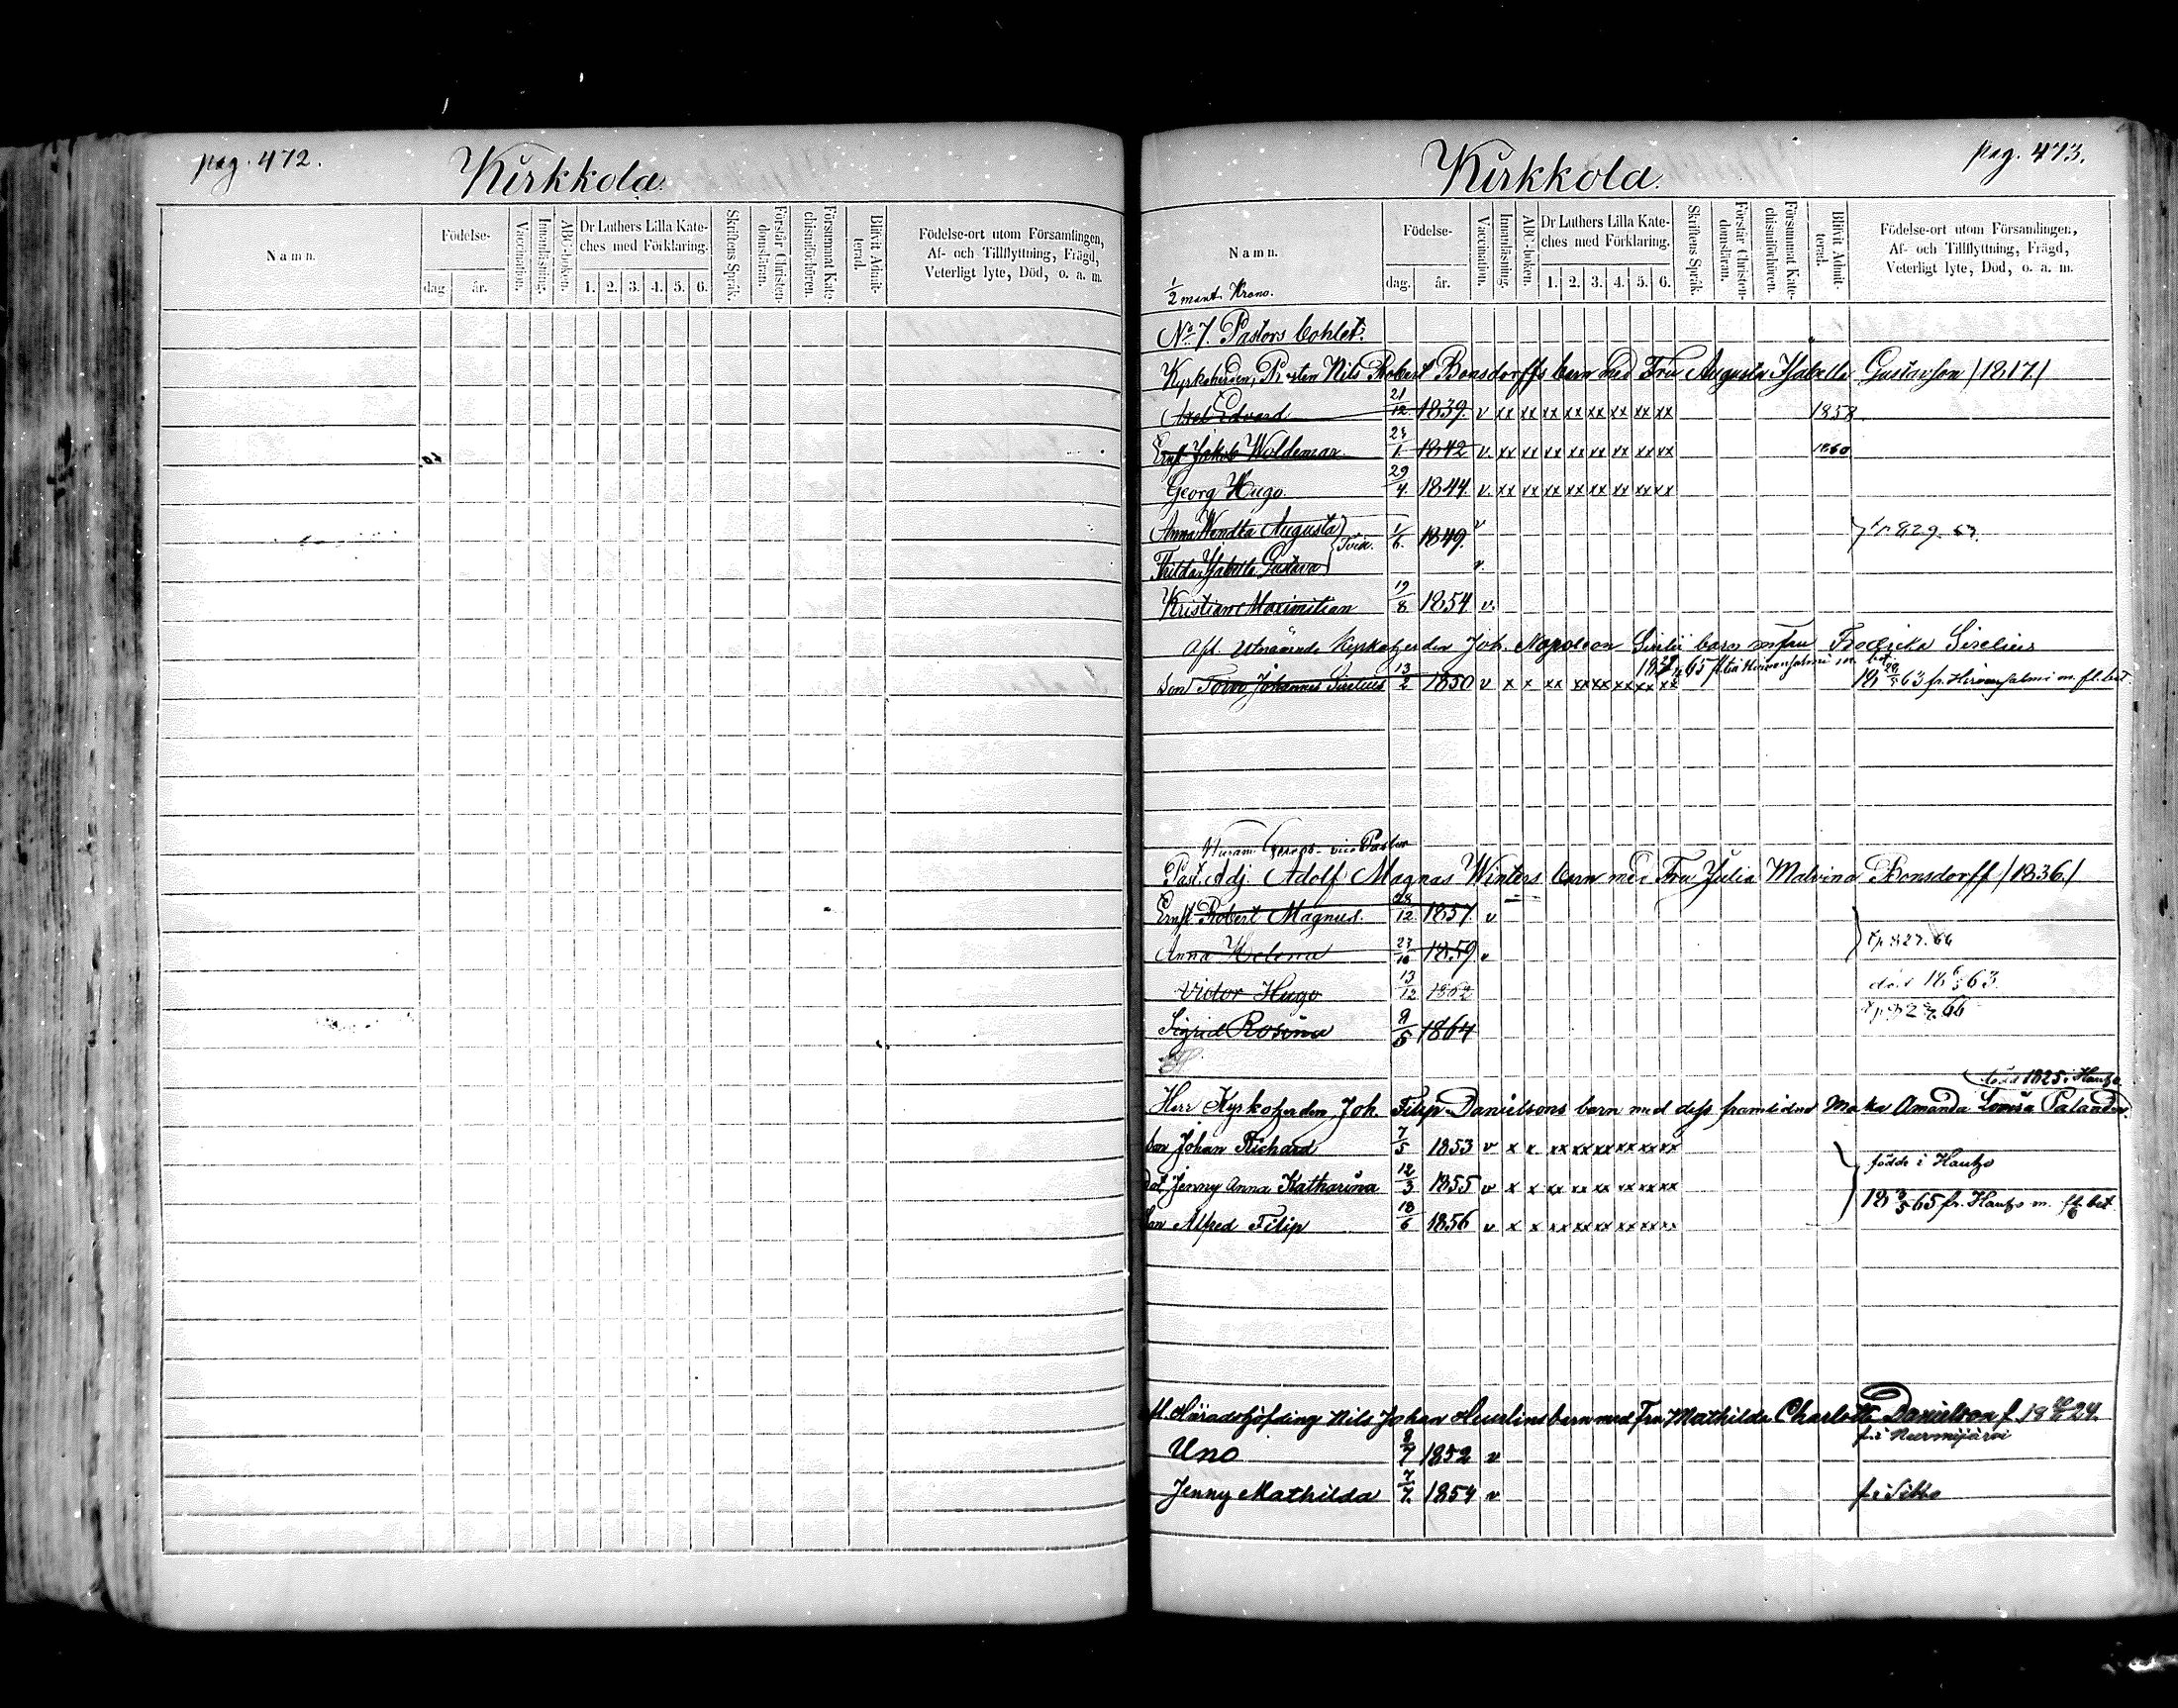 pag. 472.
Kirkkola.
Namn.
Födelse-
dag
år.
Vaccination.
Innanläsning.
ABC-boken.
Dr Luthers Lilla Kate-
ches med Förklaring.
1. 2. 3. 4. 5. 6.
Skriftens Språk.
Förstår Christen-
domsläran.
Försummat Kate-
chismiförhören.
Blifvit Admit-
terad.
Födelse-ort utom Församlingen,
Af- och Tillflyttning, Frägd,
Veterligt lyte, Död, o. a. m.
pag. 473.
Kirkkola.
Namn.
1/2 mant. Krono.
Födelse-
dag.
år.
Vaccination.
Innanläsning.
ABC-boken.
Dr Luthers Lilla Kate-
ches med Förklaring.
1. 2. 3. 4. 5. 6.
Skriftens Språk.
Förstår Christen-
domsläran.
Försummat Kate-
chismiförhören.
Blifvit Admit-
terad.
Födelse-ort utom Församlingen,
Af- och Tillflyttning, Frägd,
Veterligt lyte, Död, o. a. m.
No 7. Pastors bohlet:
Kyrkoherden, Prosten Nils Robert Bonsdorffs barn med Fru Augusta Isabella Gustavson /1817/
Axel Edvard 21/12 1839 v xx xx xx xx xx xx xx xx 1858
Ernst Jakob Woldemar 1842 v. xx xx xx xx xx xx xx xx 1860
Georg Hugo. 29/4. 1844 v. xx xx xx xx xx xx xx xx
Anna Wendla Augusta 1/6. 1849. v
Hilda Isabella Gustava v.
Kristian Maximilian 19/8 1854 v.
Kyrkoherden Joh. Napoleon Sirelii barn m fru Fredrika Sirelius
Son Toivo Johannes Sirelius 13/2 1850 v x x xx xx xx xx xx xx 63 fr. Hirvensalmi m. fl. bet.
vice Pastor
Past. Adj. Adolf Magnus Winters barn med Fru Julia Malvina Bonsdorff /1836./
Ernst Robert Magnus. 28/12 1857. v
Anna Helena 23/10 1859 v
Victor Hugo 13/12 1862 död 18 63.
Sigrid Rosina 8/5 1864
född 1825 i Hauho
Herr Kyrkoherden Joh. Filip Danielsons barn med dess framlidna Maka Amanda Lovisa Palander.
Son Johan Richard 7/5 1853 v x x xx xx xx xx xx xx
födde i Hauho
Dot. Jenny Anna Katharina 12/3 1855 v x x xx xx xx xx xx xx
65 fr. Hauho m. fl. bet.
Son Alfred Filip 18/6 1856 v x x xx xx xx xx xx xx
Häradshöfding Nils Johan Huurlins barn med Fru Mathilda Charlotta Danielson f. 18 24.
f. i Nurmijärvi
Uno 8/7 1852 v
Jenny Mathilda 7/7. 1854 v f. i Sibbo